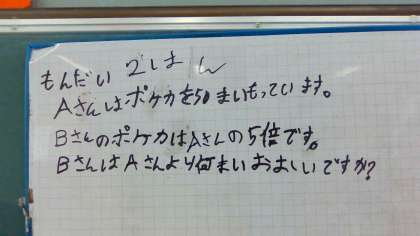 もんだい 2しはん
Aさんはポケカを50まいもっています。
BさんのポケカはAさんの5倍です。
BさんはAさんより何まいおおいいですか?